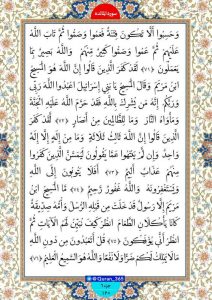 سورة المائدة
وَحَسِبُوٓا۟ أَلَّا تَكُونَ فِتْنَةٌ فَعَمُوا۟ وَصَمُّوا۟ ثُمَّ تَابَ اللَّهُ
عَلَيْهِمْ ثُمَّ عَمُوا۟ وَصَمُّوا۟ كَثِيرٌ مِّنْهُمْ وَاللَّهُ بَصِيرٌ بِمَا
يَعْمَلُونَ ﴿٧١﴾ لَقَدْ كَفَرَ الَّذِينَ قَالُوٓا۟ إِنَّ اللَّهَ هُوَ الْمَسِيحُ
ابْنُ مَرْيَمَ وَقَالَ الْمَسِيحُ يَا بَنِي إِسْرَائِيلَ اعْبُدُوا اللَّهَ رَبِّي
وَرَبَّكُمْ إِنَّهُ مَن يُشْرِكْ بِاللَّهِ فَقَدْ حَرَّمَ اللَّهُ عَلَيْهِ الْجَنَّةَ
وَمَأْوَاهُ النَّارُ وَمَا لِلظَّالِمِينَ مِنْ أَنصَارٍ ﴿٧٢﴾ لَقَدْ كَفَرَ
الَّذِينَ قَالُوٓا۟ إِنَّ اللَّهَ ثَالِثُ ثَلَاثَةٍ وَمَا مِنْ إِلَٰهٍ إِلَّا إِلَٰهٌ
وَاحِدٌ وَإِن لَّمْ يَنتَهُوا عَمَّا يَقُولُونَ لَيَمَسَّنَّ الَّذِينَ كَفَرُوا
مِنْهُمْ عَذَابٌ أَلِيمٌ ﴿٧٣﴾ أَفَلَا يَتُوبُونَ إِلَى اللَّهِ
وَيَسْتَغْفِرُونَهُ وَاللَّهُ غَفُورٌ رَّحِيمٌ ﴿٧٤﴾ مَّا الْمَسِيحُ ابْنُ
مَرْيَمَ إِلَّا رَسُولٌ قَدْ خَلَتْ مِن قَبْلِهِ الرُّسُلُ وَأُمُّهُ صِدِّيقَةٌ
كَانَا يَأْكُلَانِ الطَّعَامَ انظُرْ كَيْفَ نُبَيِّنُ لَهُمُ الْآيَاتِ ثُمَّ
انظُرْ أَنَّىٰ يُؤْفَكُونَ ﴿٧٥﴾ قُلْ أَتَعْبُدُونَ مِن دُونِ اللَّهِ
مَا لَا يَمْلِكُ لَكُمْ ضَرًّا وَلَا نَفْعًا وَاللَّهُ هُوَ السَّمِيعُ الْعَلِيمُ ﴿٧٦﴾
@Quran_365
جزء٦
١٢٠